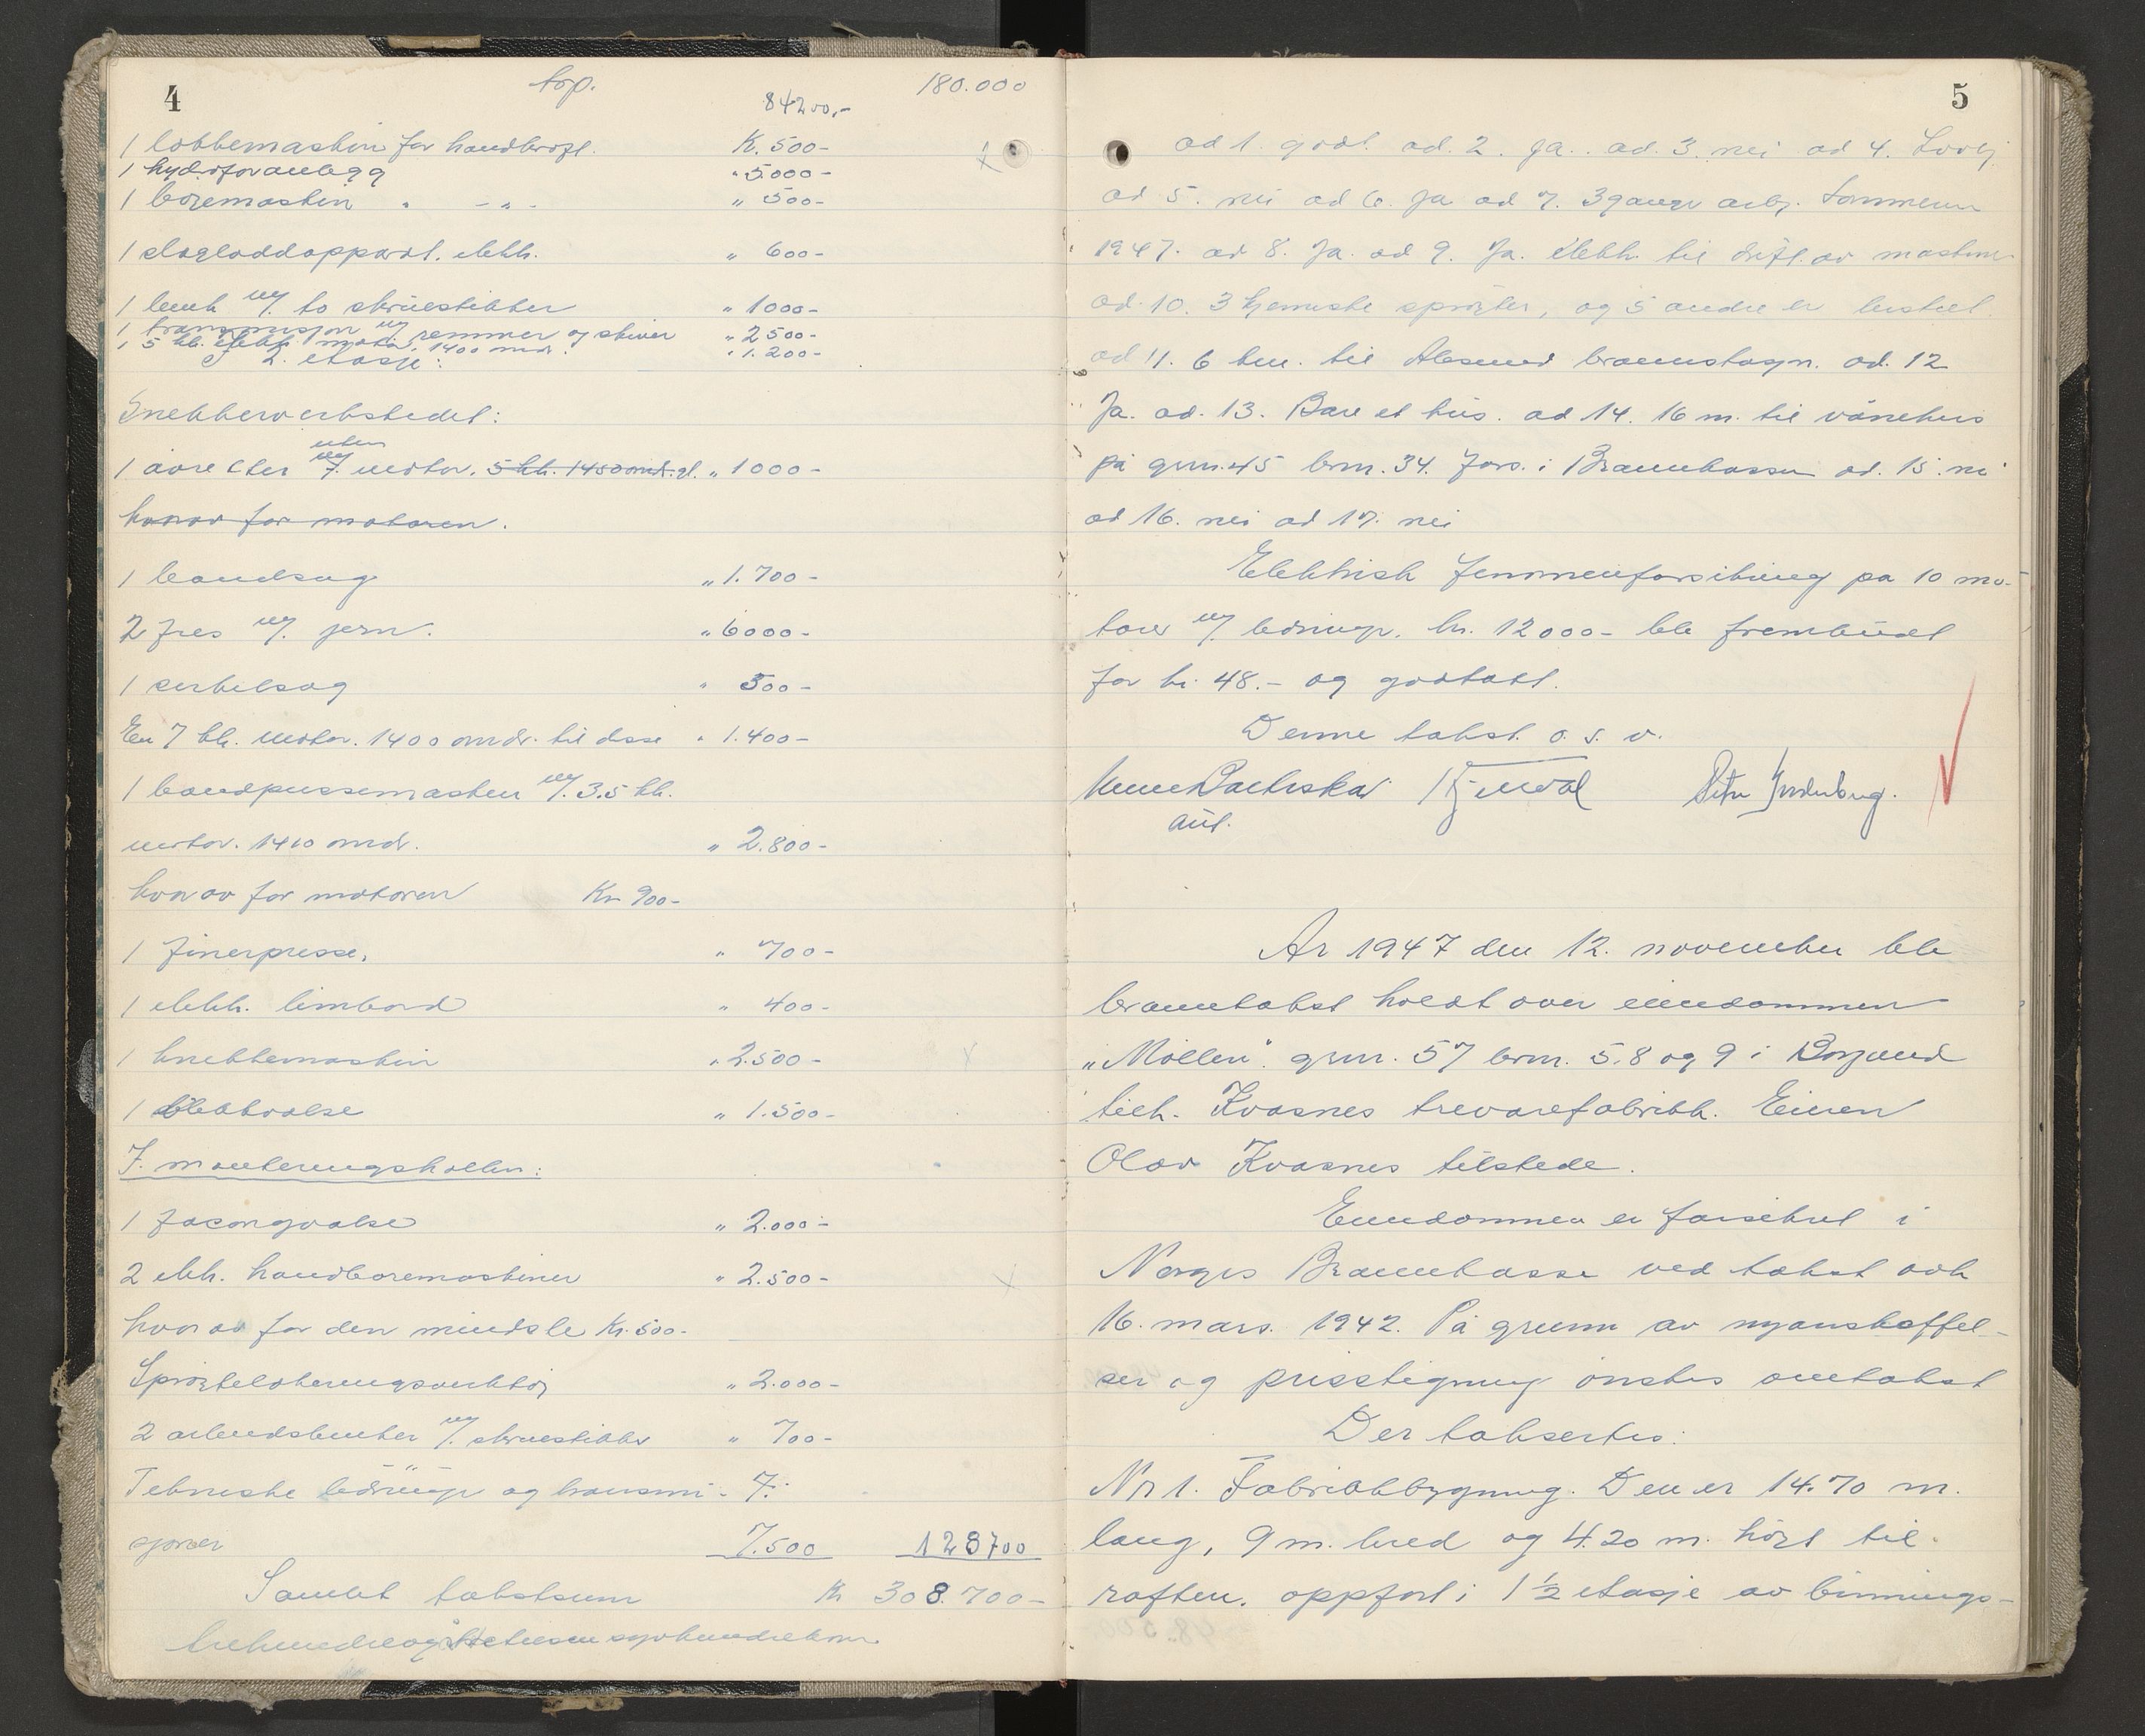 4
trp.
84200,-
180.000
1 lokkemaskin for handkraft. K. 500-
1 hydroforanlegg " 5.000-
1 boremaskin " -"- " 500-
1 slagloddapparat. elekh. " 600-
1 benk m/. to skruestikker " 1000-
1 transmisjon m/ remmer og skiver " 2500-
1 5 hk. elekk motor, 1400 omdr. " 1.200-
I 2. etasje:
Snekkerverkstedet:
uten
1 avretter m/. motor. 5 hk. 1450 omdr. gl. " 1000-
hvorav for motoren.
1 bandsag " 1.700-
2 fres m/. jern. " 6000-
1 sirkelsag " 500-
En 7 hk. motor. 1400 omdr. til disse " 1.400-
1 bandpussemaskin m/. 3.5 hk.
motor. 1410 omdr. " 2.800-
hvorav for motoren Kr 900-
1 finerpresse, " 700-
1 elekk. limbord " 400-
1 knekkemaskin " 2.500-
1 blekkvalse " 1.500-
I. monteringshallen:
1 facongvalse " 2.000-
2 elek. handboremaskiner " 2.500-
hvorav for den mindste Kr. 500-
Sprøytelakeringsverktøy " 2.000-
2 arbeidsbenker m/. skruestikker " 700-
Tekniske ledninger og transmi-
sjoner 7.500 128700
Samlet takstsum Kr 308.700-
trehundreogåttetusen syvhundrekron.
5
ad 1. godt. ad. 2. Ja. ad. 3. nei ad 4. Lovlig
ad 5. nei ad 6. Ja ad 7. 3 gange arbg. sommeren
1947. ad 8. Ja. ad 9. Ja. Elekk. til drift av maskiner
ad. 10. 3 kjemiske sprøyter, og 5 andre er bestilt.
ad 11. 6 km. til Ålesund brannstasjon. ad. 12
Ja. ad. 13. Bare et hus. ad 14. 16 m. til vånehus
på grnr. 45 brnr. 34. fors. i Brannkassen ad. 15. nei
ad 16. nei ad 17. nei
Elektrisk fenomenforsikring på 10 mo-
torer m/ ledninger. kr. 12000- ble frembudt
for kr. 48.- og godtatt.
Denne takst o. s. v.
aut.
År 1947 den 12. november ble
branntakst holdt over eiendommen
"Møllen". grnr. 57 brnr. 5.8 og 9 i Borgund
tilh. Kvasnes trevarefabrikk. Eieren
Olav Kvasnes tilstede.
Eiendommen er forsikret i
Norges Brannkasse ved takst avh
16. mars. 1942. På grunn av nyanskaffel-
ser og prisstigning ønskes omtakst
Der takseres:
Nr 1. Fabrikkbygning. Den er 14.70 m.
lang, 9 m. bred og 4.20 m. høyt til
raften. oppført i 1 ½ etasje av binnings-